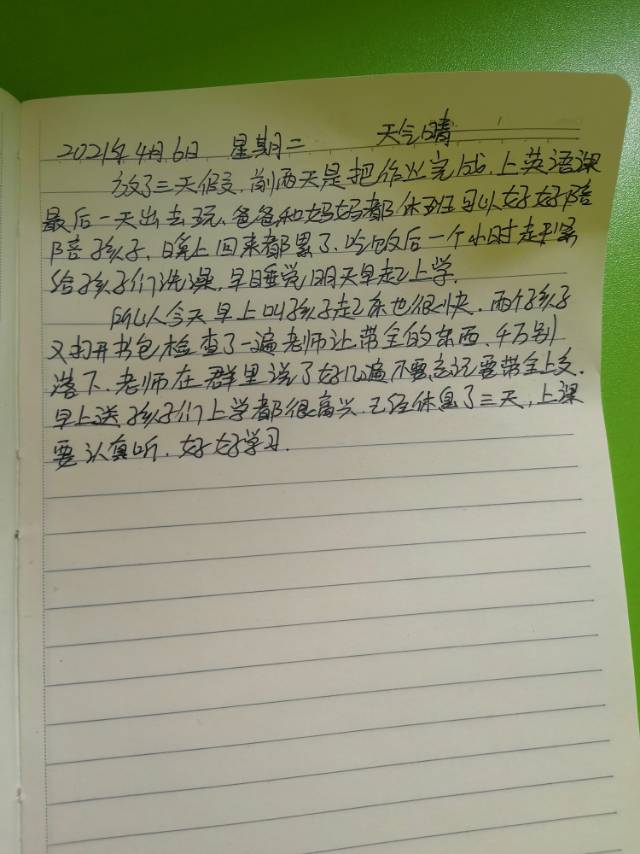 2021年4月6日 星期二 天气晴
放了三天假, 前两天是把作业完成, 上英语课
最后一天出去玩, 爸爸和妈妈都休班可以好好陪
陪孩子, 晚上回来都累了, 吃饭后一个小时赶紧
给孩子们洗澡, 早睡觉明天早起上学.
所以今天早上叫孩子起床也很快, 两个孩子
又打开书包检查了一遍老师让带全的东西, 千万别
落下, 老师在群里说了好几遍不要忘记要带全上交.
早上送孩子们上学都很高兴, 已经休息了三天, 上课
要认真听, 好好学习.